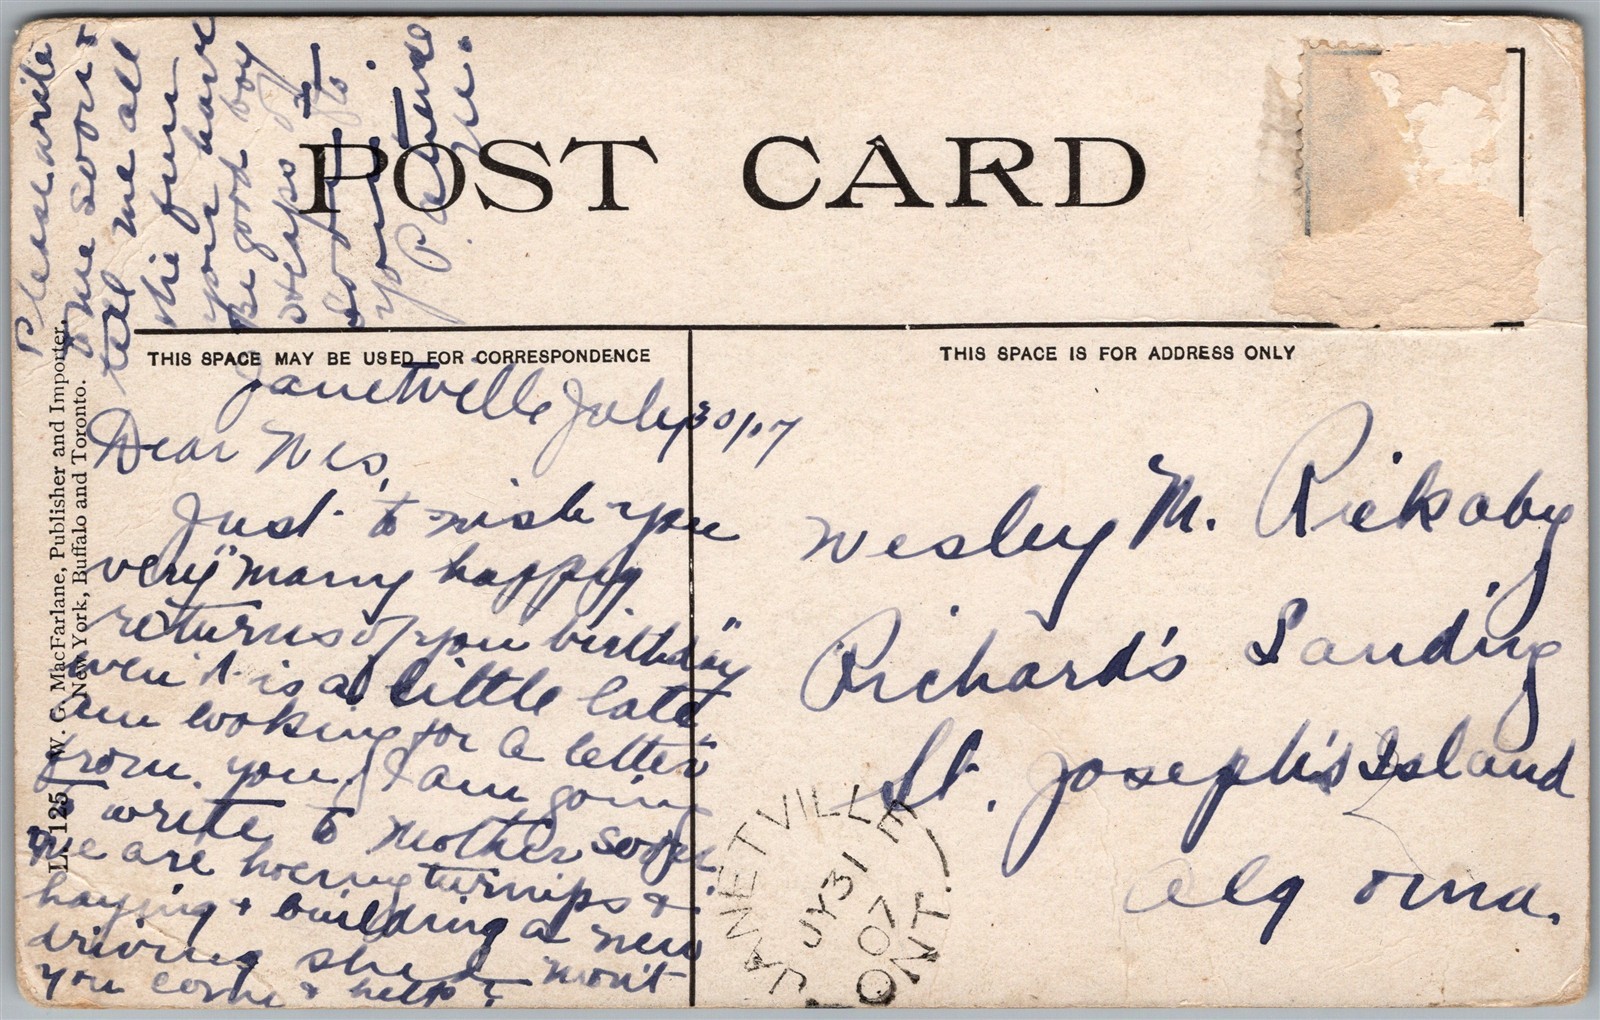 POST CARD
THIS SPACE MAY BE USED FOR CORRESPONDENCE
THIS SPACE IS FOR ADDRESS ONLY
L. 125 W. G. MacFarlane, Publisher and Importer,
New York, Buffalo and Toronto.
Janetville July 30/07
Dear Wes,
Just to wish you
very "many happy
returns of you birthday"
even it is a little late
am looking for a letter
from you. I am going
to write to Mother soon
We are hoeing turnips &
haying & building a new
driving shed won't
you come & help?
Please write
me soon &
tell me all
the fun
you have
Be good boy
heaps of
love to
you.
Wesley M. Rickaby
Richard's Landing
St. Joseph's Island
Algoma.
JANETVILLE
JY 31
07
ONT.